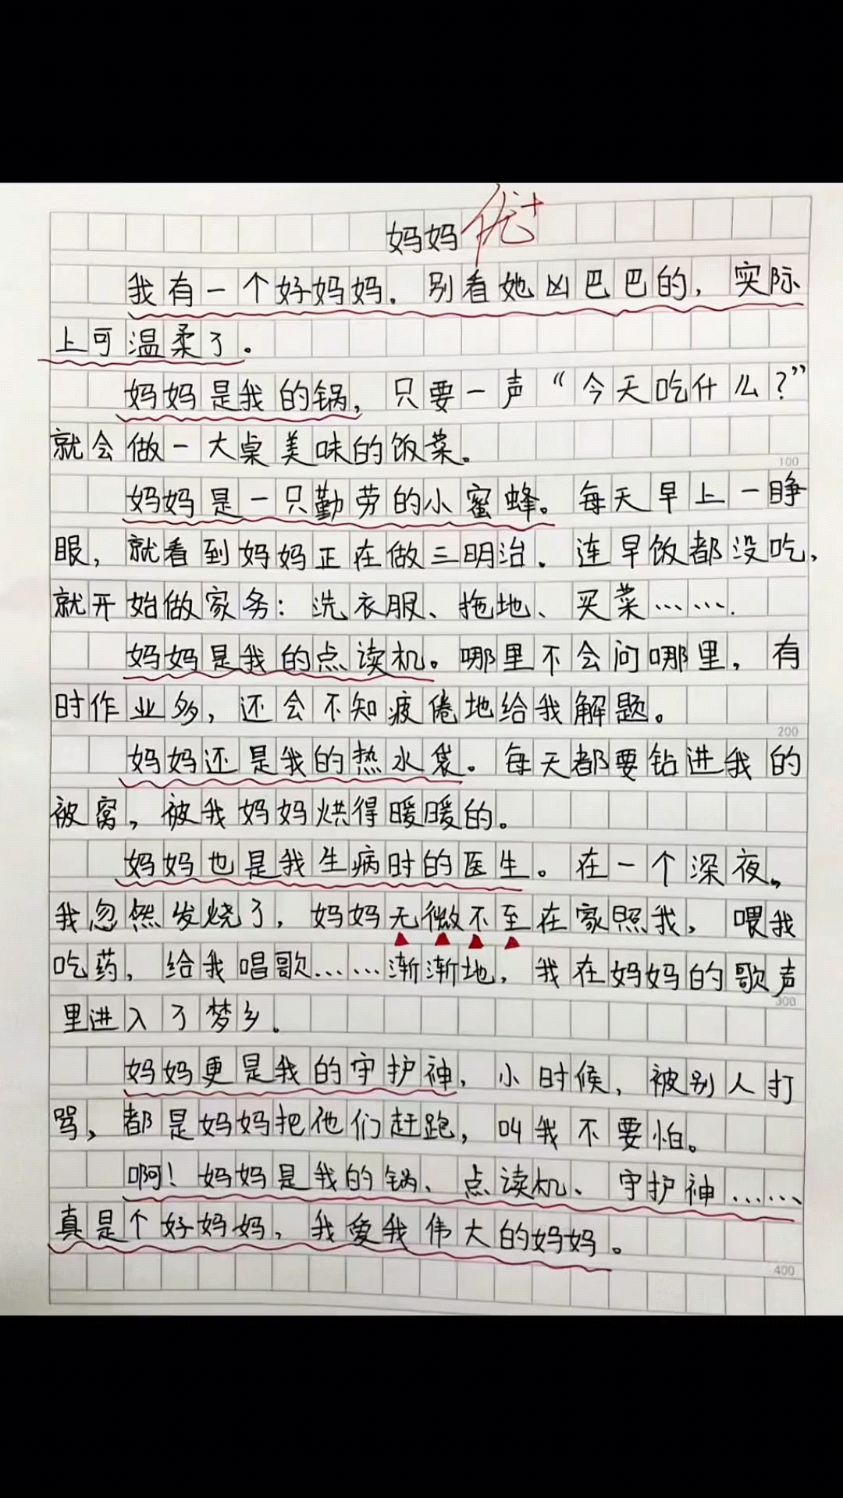 妈妈 优+
我有一个好妈妈．别看她凶巴巴的，实际
上可温柔了。
妈妈是我的锅，只要一声“今天吃什么？”
就会做一大桌美味的饭菜。
妈妈是一只勤劳的小蜜蜂。每天早上一睁
眼，就看到妈妈正在做三明治．连早饭都没吃，
就开始做家务：洗衣服、拖地、买菜…….
100
妈妈是我的点读机。哪里不会问哪里，有
时作业多，还会不知疲倦地给我解题。
200
妈妈还是我的热水袋。每天都要钻进我的
被窝，被我妈妈烘得暖暖的。
妈妈也是我生病时的医生。在一个深夜，
我忽然发烧了，妈妈无微不至在家照我，喂我
吃药，给我唱歌……渐渐地，我在妈妈的歌声
300
里进入了梦乡．
妈妈更是我的守护神，小时候，被别人打
骂，都是妈妈把他们赶跑，叫我不要怕。
啊！妈妈是我的锅、点读机、守护神……
真是个好妈妈，我爱我伟大的妈妈。
400